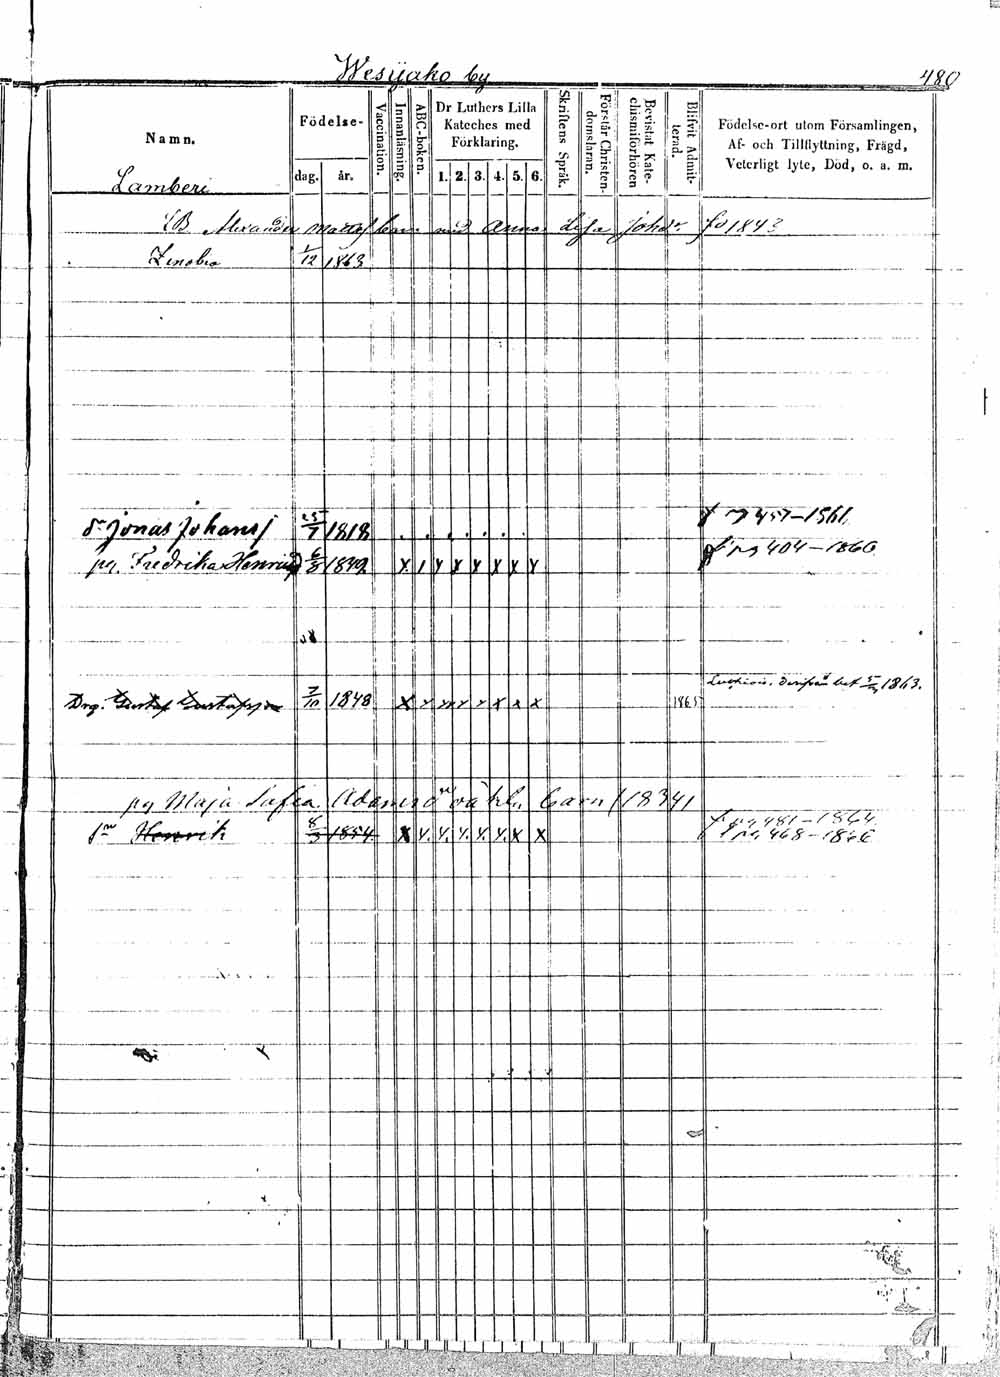 Wesijako by
480
Namn.
Födelse-
dag.
år.
Vaccination.
Innanläsning.
ABC-boken.
Dr Luthers Lilla
Kateches med
Förklaring.
1. 2. 3. 4. 5. 6.
Skriftens Språk.
Förstår Christen-
domsläran.
Bevistat Kate-
chismiförhören
Blifvit Admit-
terad.
Födelse-ort utom Församlingen,
Af- och Tillflyttning, Frägd,
Veterligt lyte, Död, o. a. m.
Lamberi
Alexander Matts barn med Anna Lisa Johdr fd 1843
Zenobia 1/12 1863
dr Jonas Johans 25/7 1818 457-1861
pg. Fredrika Henrics 6/8 1842 x x x x x x x pg 404-1860
Drg. Gustaf Gustafsson 7/10 1848 x x x x x x 1865 1863.
pg Maja Safia Adamsdr barn (1834)
pg 481-1864
sn Henrik 8/3 1854 x x x pg 468-1866